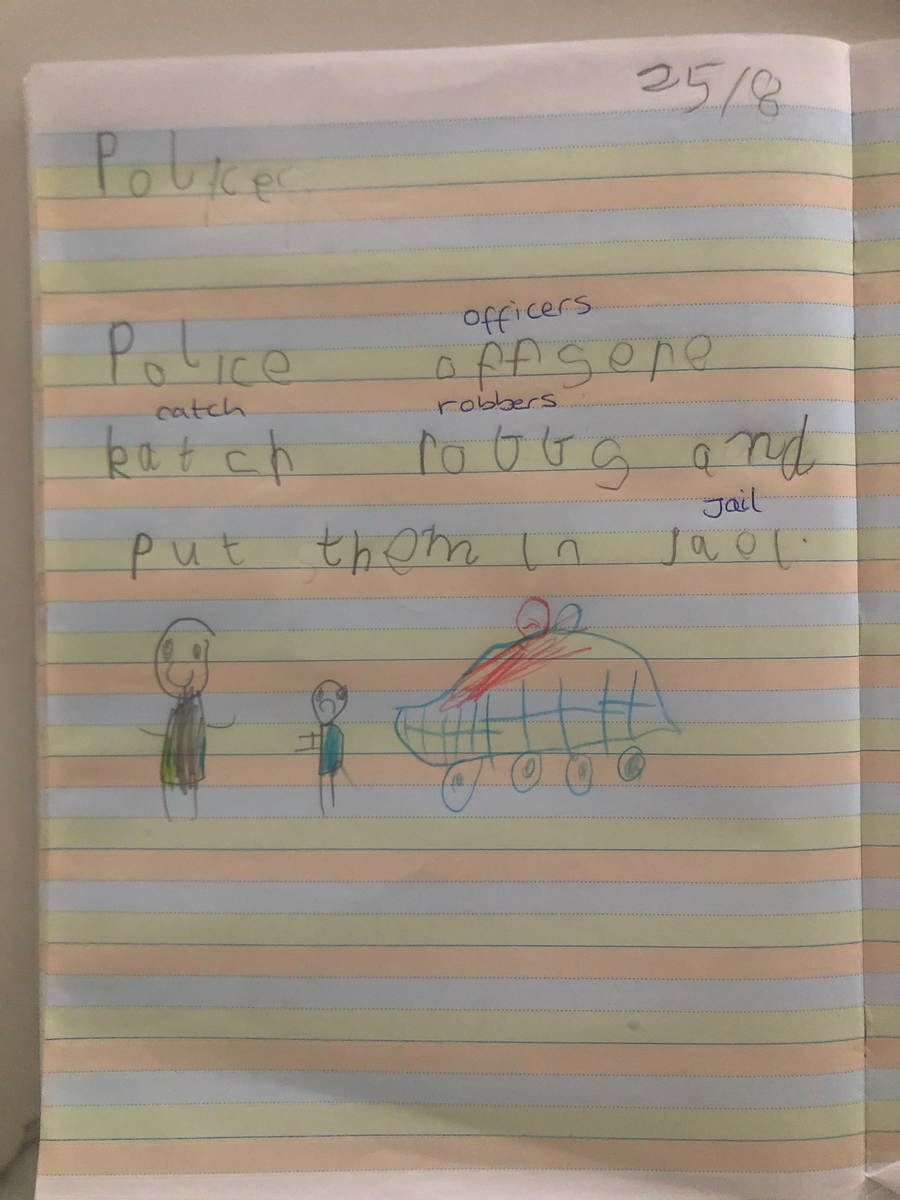 25/8
Police
officers
Police offisere
catch robbers
katch robbs and
jail
put them in jael.